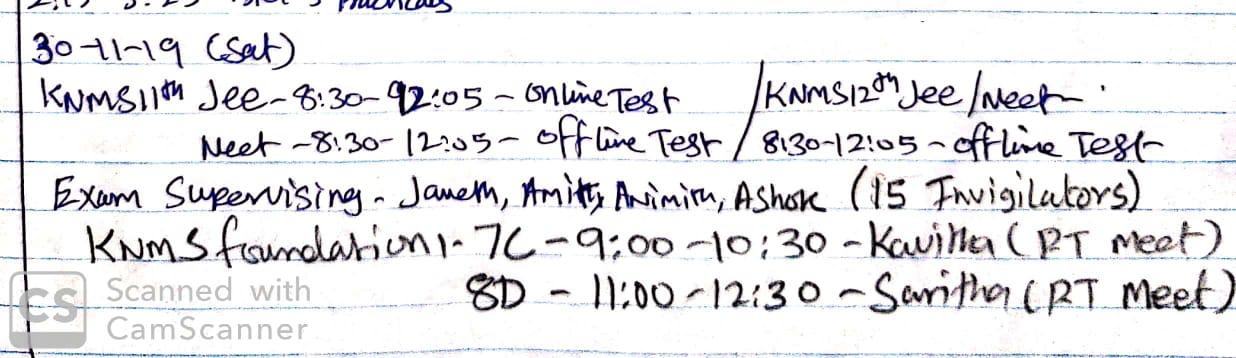 Practicals
30-11-19 (Sat)
KNMS11th Jee - 8:30 - 12:05 - Online Test /KNMS12th Jee/Neet
Neet - 8:30 - 12:05 - Offline Test / 8:30-12:05 - offline Test
Exam Supervising - Janeth, Amitty, Animita, Ashok (15 Invigilators)
KNMS foundation :- 7C - 9:00 - 10:30 - Kavitha (PT Meet)
8D - 11:00 - 12:30 - Saritha (PT Meet)
CS Scanned with
CamScanner